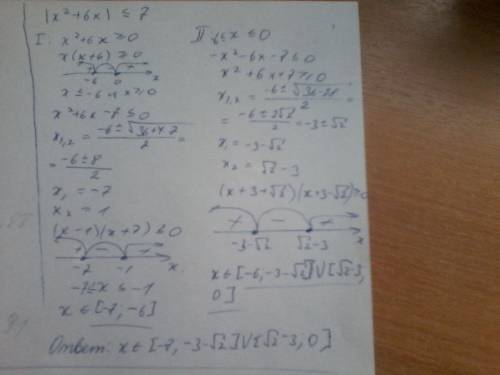 |x²+6x| ≤ 7
I: x²+6x ≥ 0
x(x+6) ≥ 0
+ − +
-6 0 x
x ≤ -6 x ≥ 0
x²+6x-7 ≤ 0
x₁,₂ = (-6±√(36+4·7))/2 =
= (-6±8)/2
x₁ = -7
x₂ = 1
(x-1)(x+7) ≤ 0
+ − +
-7 -1 x
-7 ≤ x ≤ -1
x ∈ [-7; -6]
II -6 ≤ x ≤ 0
-x²-6x-7 ≤ 0
x²+6x+7 ≥ 0
x₁,₂ = (-6±√(36-28))/2 =
= (-6±2√2)/2 = -3±√2
x₁ = -3-√2
x₂ = √2-3
(x+3+√2)(x+3-√2) ≥ 0
+ − +
-3-√2 √2-3 x
x ∈ [-6, -3-√2] V [√2-3,
0]
Ответ: x ∈ [-7, -3-√2] V [√2-3; 0]